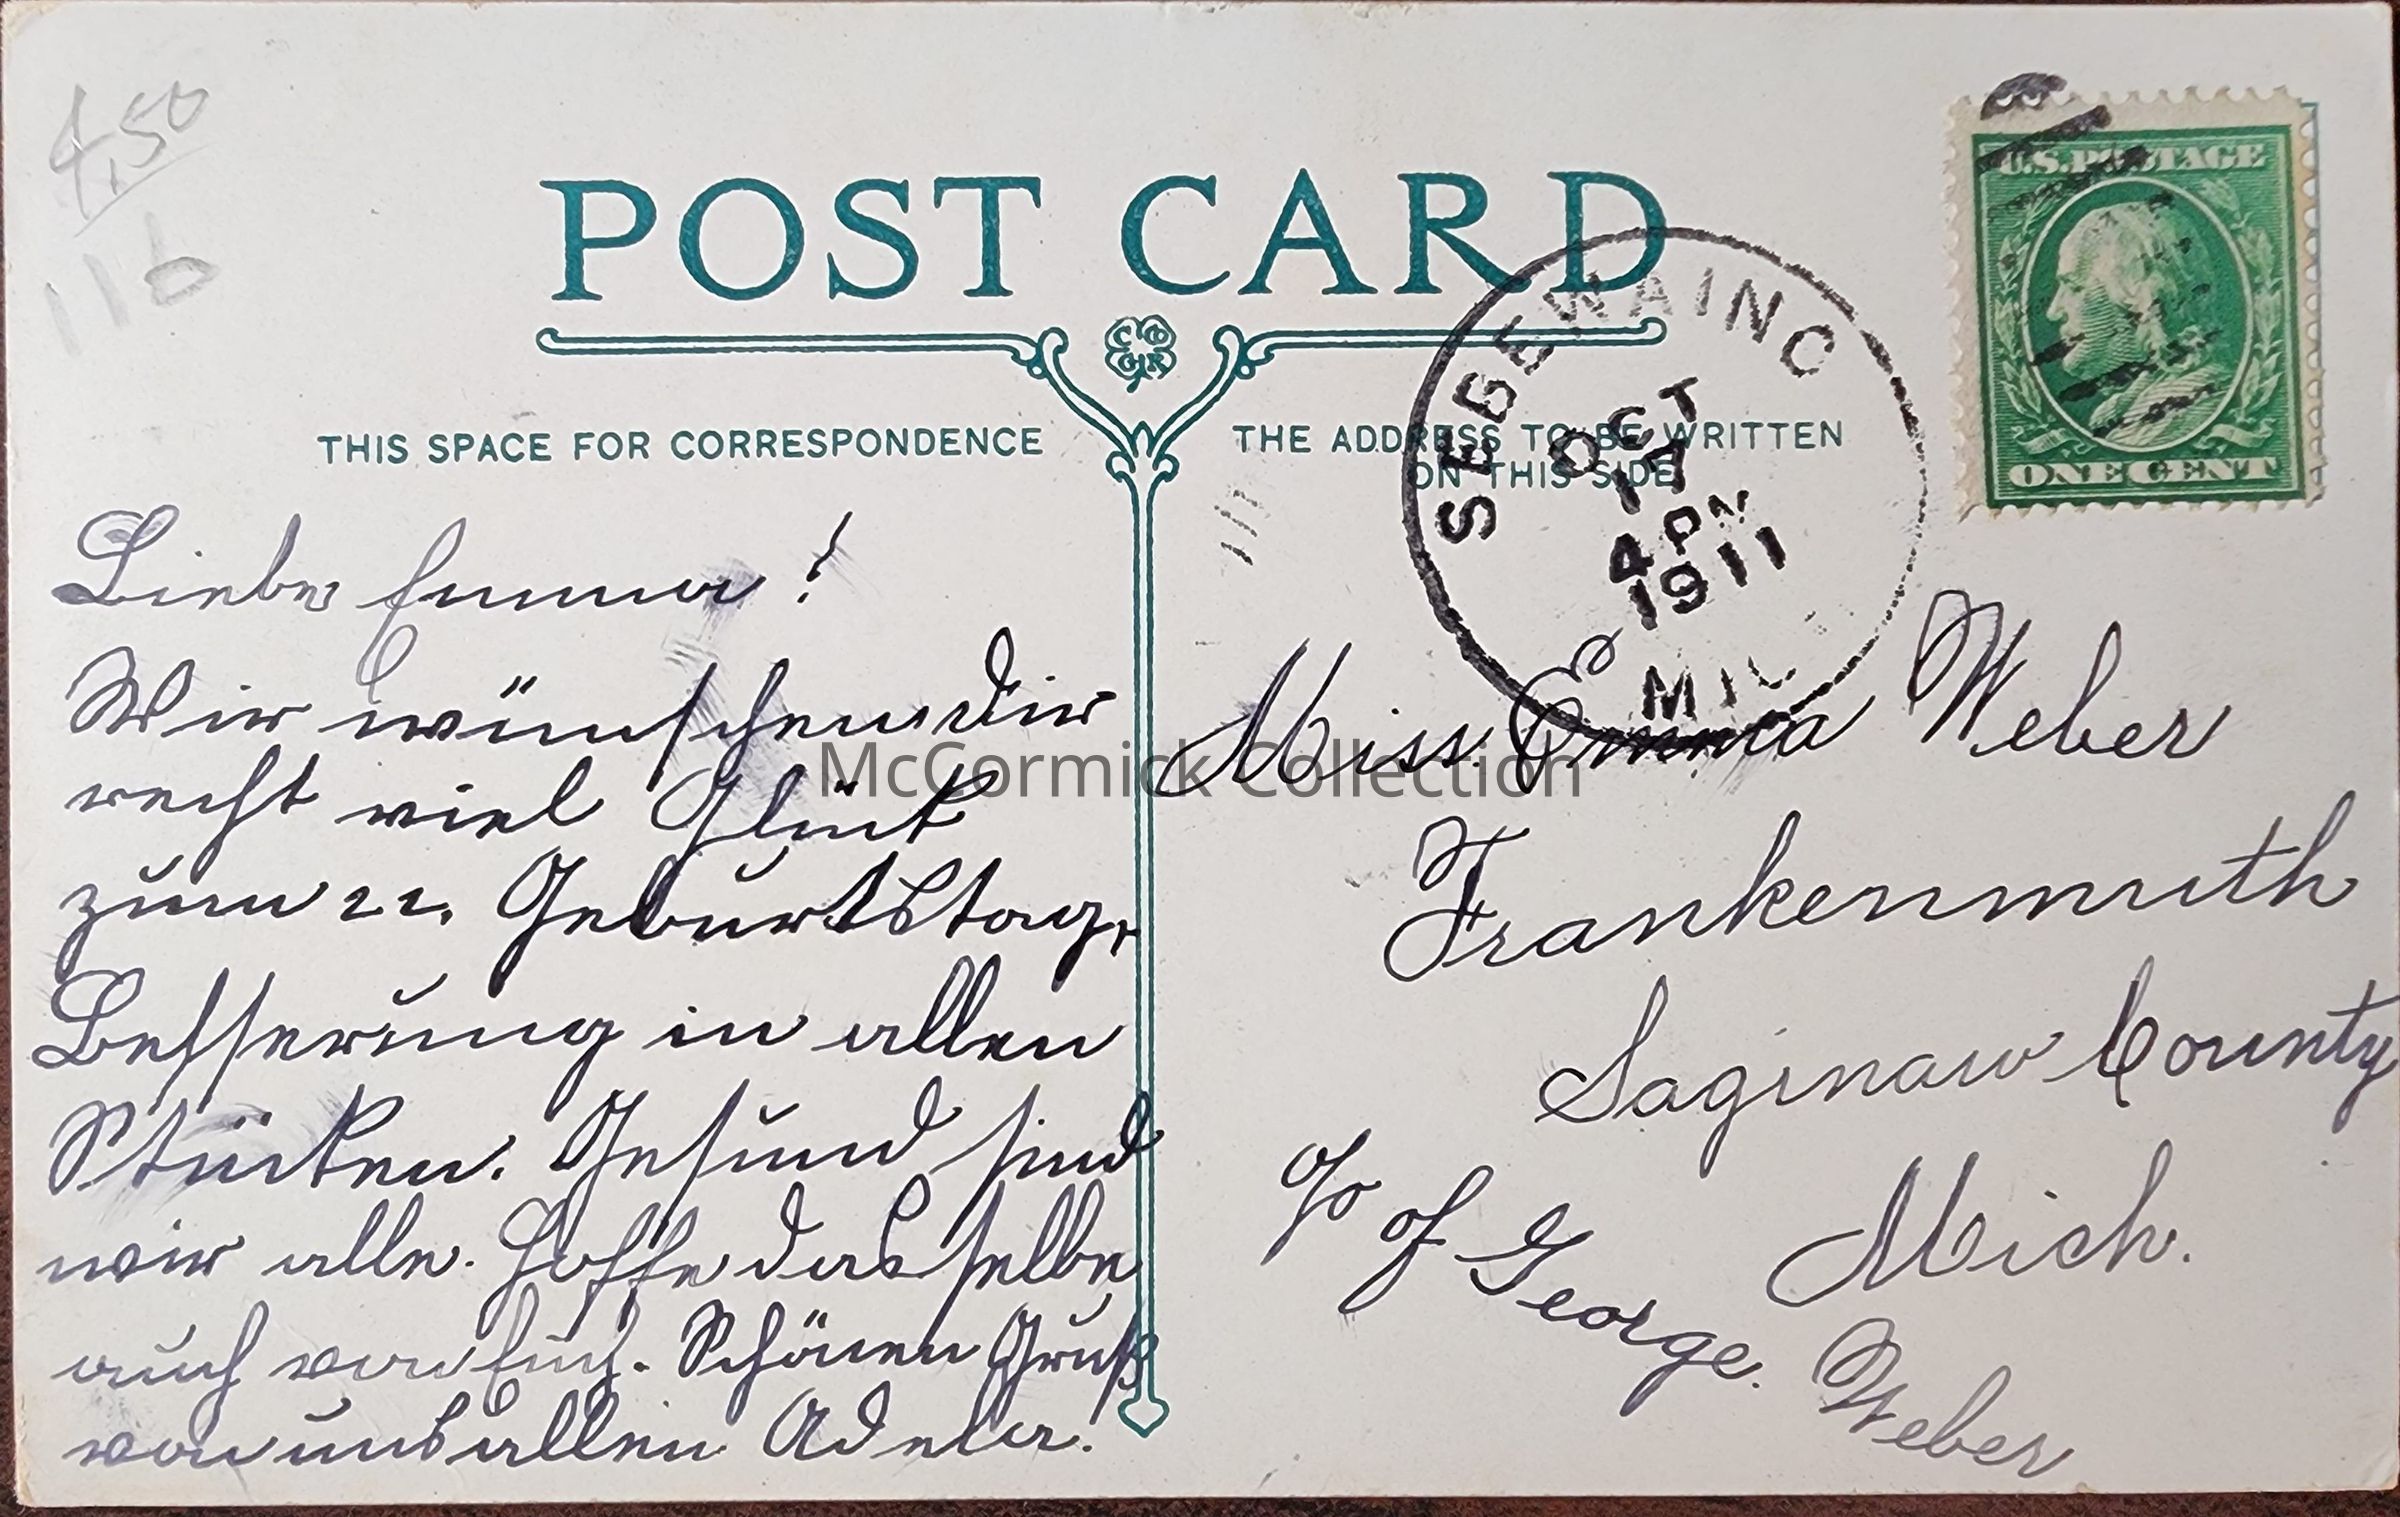 4,50
116
POST CARD
C CO
G R
THIS SPACE FOR CORRESPONDENCE
THE ADDRESS TO BE WRITTEN
ON THIS SIDE
U.S. POSTAGE
ONE CENT
SEBEWAING
OCT
17
4 PM
1911
MIC
Liebe Emma!
Wir wünschen dir
recht viel Glück
zum 22. Geburtstag,
Besserung in allen
Stücken. Gesund sind
wir alle. Hoffe dasselbe
auch von Euch. Schönen Gruß
von uns allen Adela.
Miss. Emma Weber
Frankenmuth
Saginaw County
Mich.
c/o of George. Weber
McCormick Collection